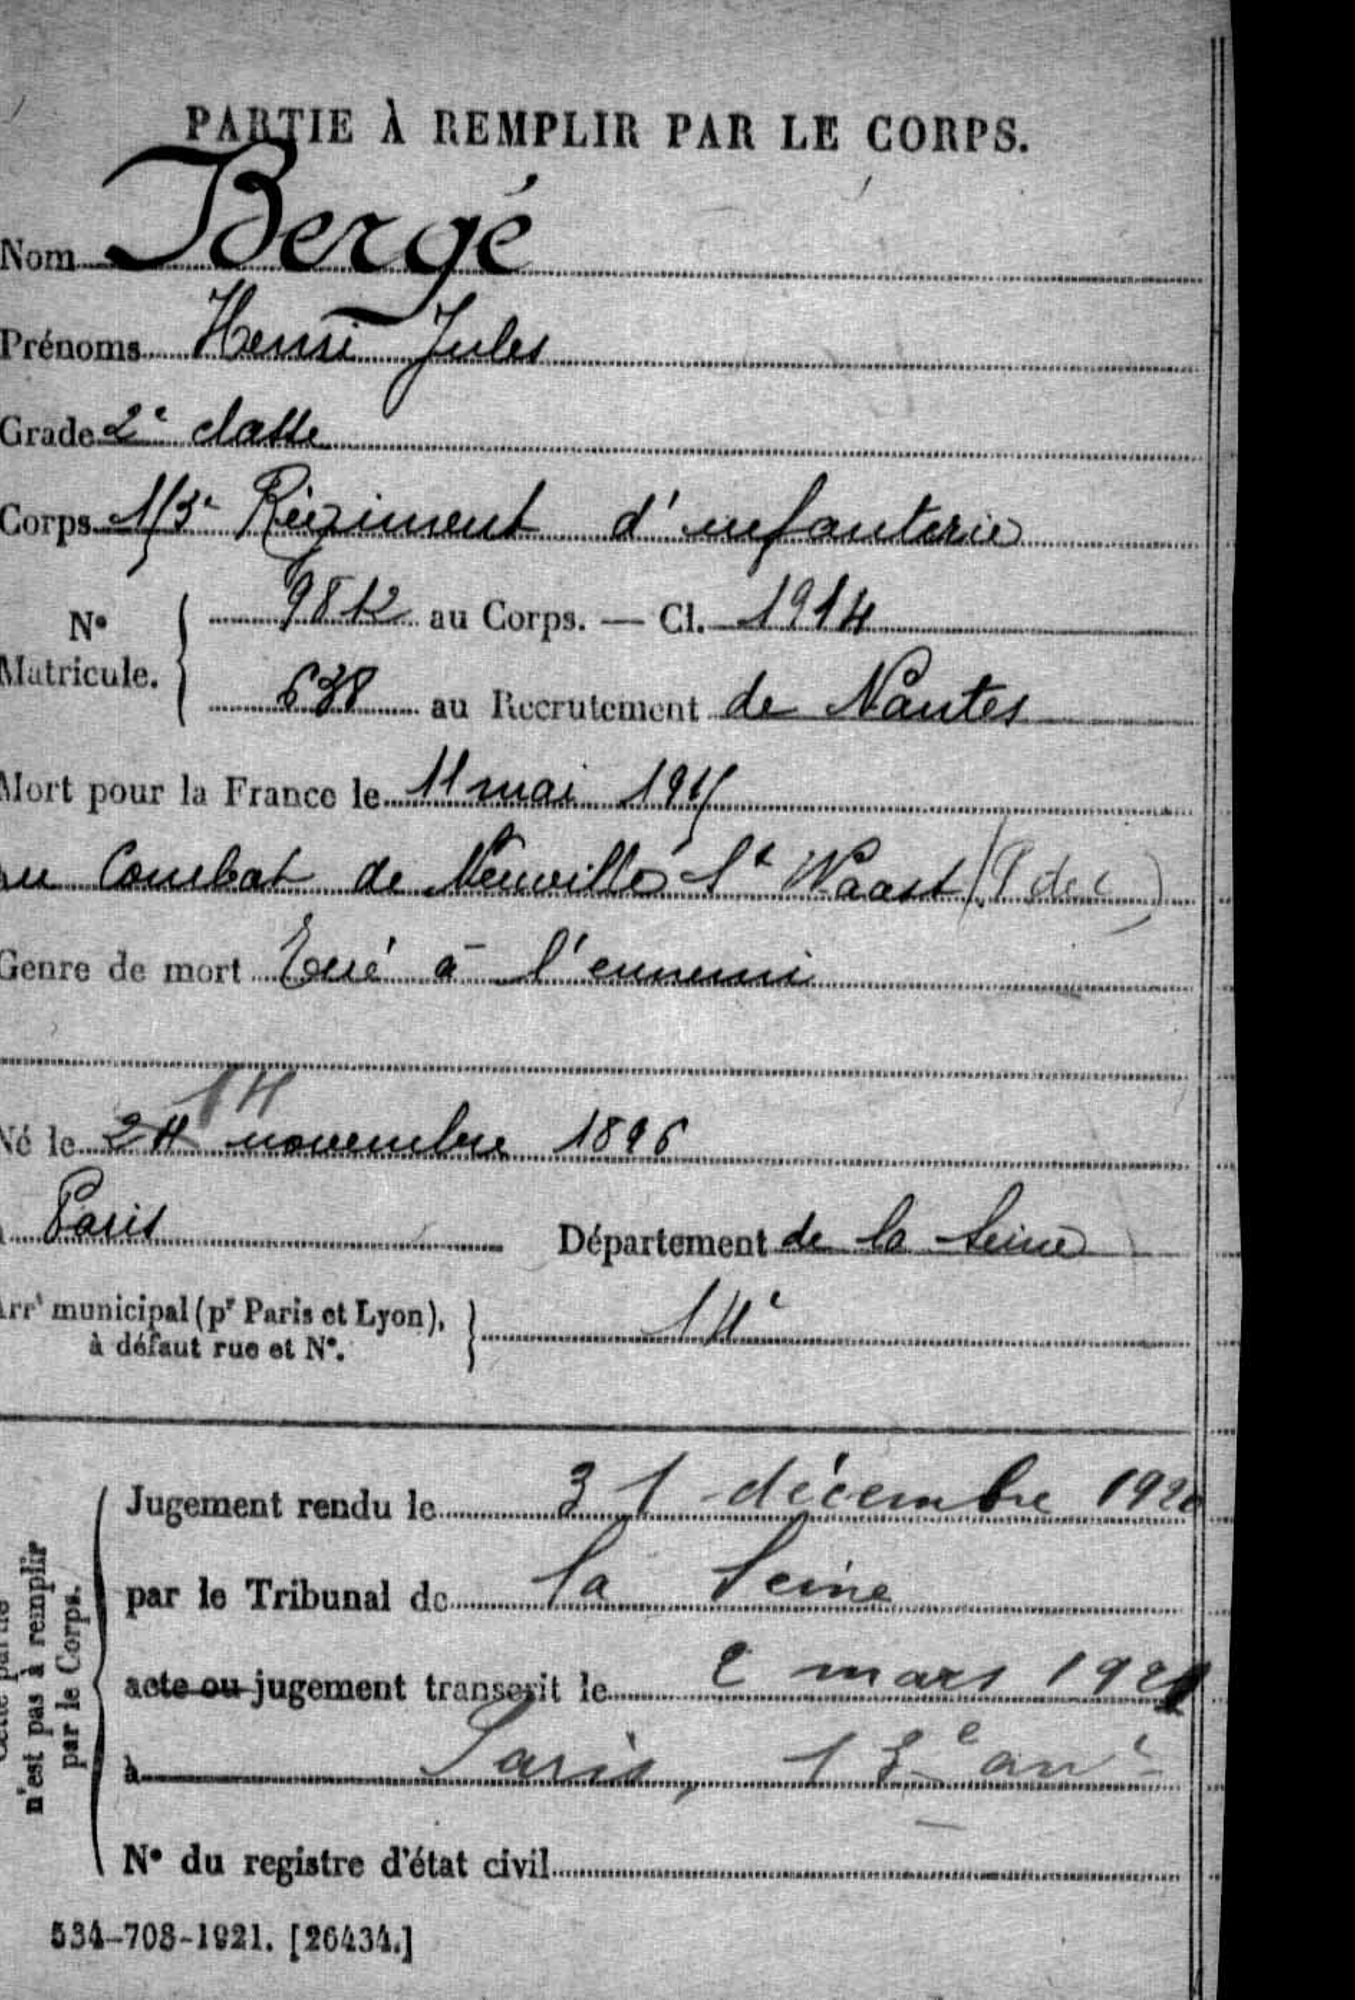 PARTIE À REMPLIR PAR LE CORPS.
Nom Bergé
Prénoms Henri Jules
Grade 2e classe
Corps 113e Régiment d'infanterie
No Matricule. { 9812 au Corps. — Cl. 1914
638 au Recrutement de Nantes
Mort pour la France le 11 mai 1915
au Combat de Neuville St Waast (P de C)
Genre de mort Tué à l'ennemi
14
Né le 24 novembre 1896
à Paris Département de la Seine
Arrt municipal (pr Paris et Lyon), à défaut rue et No. } 14e
Cette partie n'est pas à remplir par le Corps.
Jugement rendu le 31 décembre 1920
par le Tribunal de la Seine
acte ou jugement transcrit le 2 mars 1921
à Paris, 13e arrt
No du registre d'état civil
534-708-1921. [26434.]